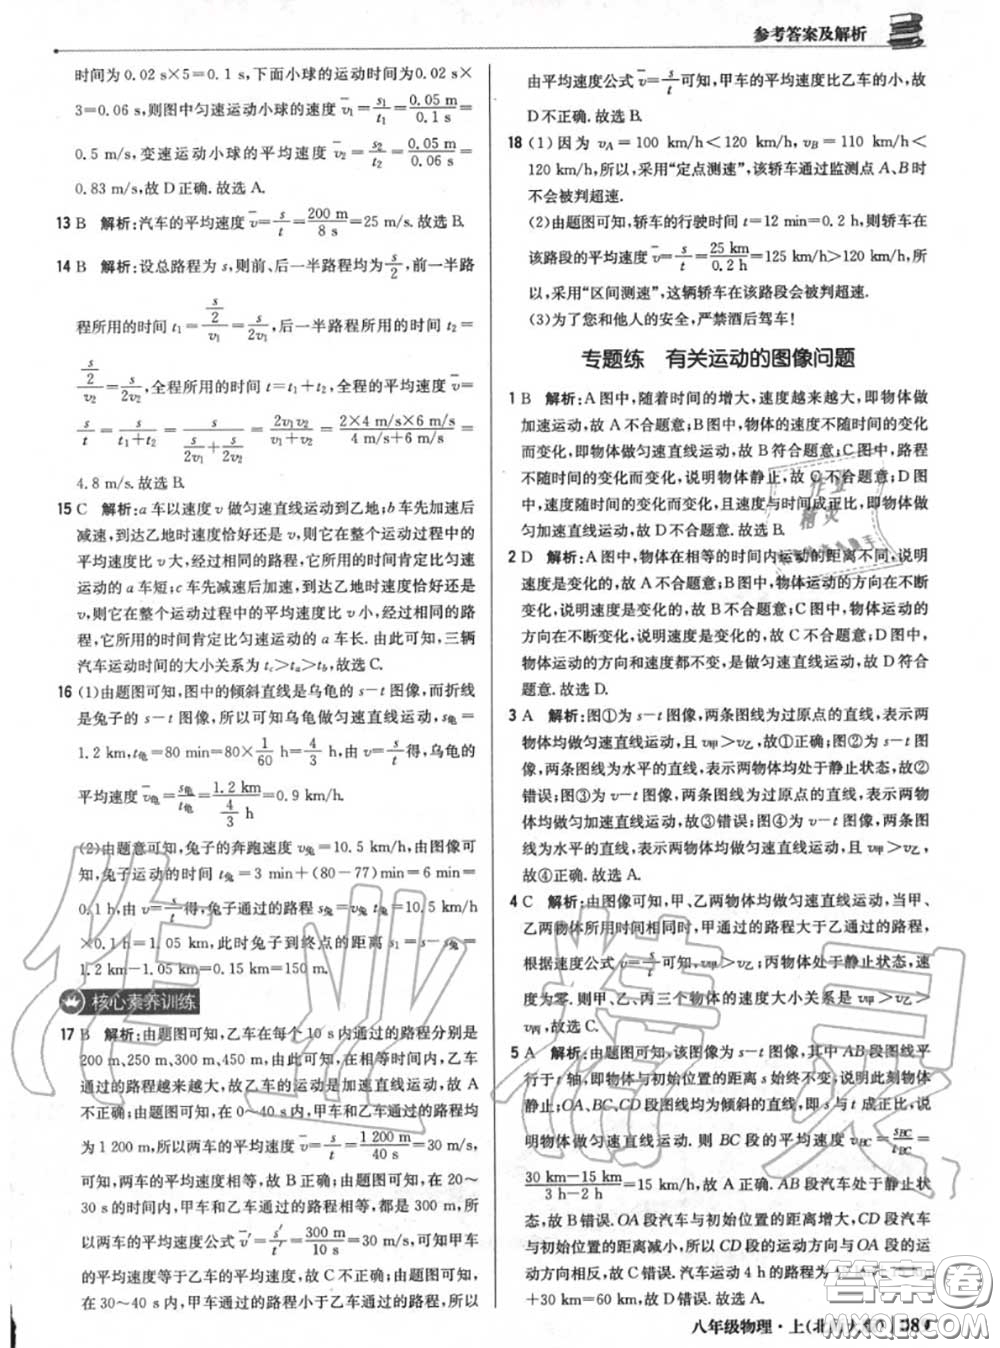 参考答案及解析
时间为0.02 s×5=0.1 s,下面小球的运动时间为0.02 s×
3=0.06 s,则图中匀速运动小球的速度 v̄₁=s₁/t₁=0.05 m/0.1 s=
0.5 m/s,变速运动小球的平均速度 v̄₂=s₂/t₂=0.05 m/0.06 s=
0.83 m/s,故 D 正确.故选 A.
13 B 解析:汽车的平均速度 v̄=s/t=200 m/8 s=25 m/s.故选 B.
14 B 解析:设总路程为 s,则前、后一半路程均为 s/2,前一半路
程所用的时间 t₁=(s/2)/v₁=s/2v₁,后一半路程所用的时间 t₂=
(s/2)/v₂=s/2v₂,全程所用的时间 t=t₁+t₂,全程的平均速度 v̄=
s/t=s/(t₁+t₂)=s/(s/2v₁+s/2v₂)=2v₁v₂/(v₁+v₂)=(2×4 m/s×6 m/s)/(4 m/s+6 m/s)=
4.8 m/s.故选 B.
15 C 解析:a 车以速度 v 做匀速直线运动到乙地;b 车先加速后
减速,到达乙地时速度恰好还是 v,则它在整个运动过程中的
平均速度比 v 大,经过相同的路程,它所用的时间肯定比匀速
运动的 a 车短;c 车先减速后加速,到达乙地时速度恰好还是
v,则它在整个运动过程中的平均速度比 v 小,经过相同的路
程,它所用的时间肯定比匀速运动的 a 车长.由此可知,三辆
汽车运动时间的大小关系为 tc>ta>tb,故选 C.
16 (1)由题图可知,图中的倾斜直线是乌龟的 s-t 图像,而折线
是兔子的 s-t 图像,所以可知乌龟做匀速直线运动,s龟=
1.2 km,t龟=80 min=80×1/60 h=4/3 h,由 v=s/t得,乌龟的
平均速度 v̄龟=s龟/t龟=1.2 km/(4/3 h)=0.9 km/h.
(2)由题意可知,兔子的奔跑速度 v兔=10.5 km/h,由图像可
知,兔子运动的时间 t兔=3 min+(80-77)min=6 min=
0.1 h,由 v=s/t得,兔子通过的路程 s兔=v兔t兔=10.5 km/h
×0.1 h=1.05 km,此时兔子到终点的距离 s₁=s-s兔=
1.2 km-1.05 km=0.15 km=150 m.
核心素养训练
17 B 解析:由题图可知,乙车在每个 10 s 内通过的路程分别是
200 m,250 m,300 m,450 m,由此可知,在相同时间内,乙车
通过的路程越来越大,故乙车的运动是加速直线运动,故 A
不正确;由题图可知,在 0~40 s 内,甲车和乙车通过的路程
均为 1 200 m,所以两车的平均速度 v̄=s/t=1 200 m/40 s=30 m/s,
即两车的平均速度相等,故 B 正确;由题图可知,在 20~
30 s 的时间内,甲车和乙车通过的路程相等,都是 300 m,所
以两车的平均速度公式 v̄′=s′/t′=300 m/10 s=30 m/s,可知甲车
的平均速度等于乙车的平均速度,故 C 不正确;由题图可知,
在 10~30 s 内,甲车通过的路程小于乙车通过的路程,所以
由平均速度公式 v̄=s/t可知,甲车的平均速度比乙车的小,故
D 不正确.故选 B.
18 (1)因为 vA=100 km/h<120 km/h,vB=110 km/h<
120 km/h,所以,采用“定点测速”,该轿车通过监测点 A、B 时
不会被判超速.
(2)由题图可知,轿车的行驶时间 t=12 min=0.2 h,则轿车在
该路段的平均速度 v̄=s/t=25 km/0.2 h=125 km/h>120 km/h,所
以,采用“区间测速”,这辆轿车在该路段会被判超速.
(3)为了您和他人的安全,严禁酒后驾车!
专题练 有关运动的图像问题
1 B 解析:A 图中,随着时间的增大,速度越来越大,即物体做
加速运动,故 A 不合题意;B 图中,物体的速度不随时间的变化
而变化,即物体做匀速直线运动,故 B 符合题意;C 图中,路程
不随时间的变化而变化,说明物体静止,故 C 不合题意;D 图
中,速度随时间的变化而变化,且速度与时间成正比,即物体做
匀加速直线运动,故 D 不合题意.故选 B.
2 D 解析:A 图中,物体在相等的时间内运动的距离不同,说明
速度是变化的,故 A 不合题意;B 图中,物体运动的方向在不断
变化,说明速度是变化的,故 B 不合题意;C 图中,物体运动的
方向在不断变化,说明速度是变化的,故 C 不合题意;D 图中,
物体运动的方向和速度都不变,是做匀速直线运动,故 D 符合
题意.故选 D.
3 A 解析:图①为 s-t 图像,两条图线为过原点的直线,表示两
物体均做匀速直线运动,且 v甲>v乙,故①正确;图②为 s-t 图
像,两条图线为水平的直线,表示两物体均处于静止状态,故②
错误;图③为 v-t 图像,两条图线为过原点的直线,表示两物
体均做匀加速直线运动,故③错误;图④为 v-t 图像,两条图
线为水平的直线,表示两物体均做匀速直线运动,且 v甲>v乙,
故④正确.故选 A.
4 C 解析:由图像可知,甲、乙两物体均做匀速直线运动,当甲、
乙两物体所用时间相同时,甲通过的路程大于乙通过的路程,
根据速度公式 v=s/t可知,v甲>v乙;丙物体处于静止状态,速
度为零.则甲、乙、丙三个物体的速度大小关系是 v甲>v乙>
v丙,故选 C.
5 A 解析:由题图可知,该图像为 s-t 图像,其中 AB 段图线平
行于 t 轴,即物体与初始位置的距离 s 始终不变,说明此刻物体
静止;OA、BC、CD 段图线均为倾斜的直线,即 s 与 t 成正比,说
明物体做匀速直线运动.则 BC 段的平均速度 v̄BC=sBC/tBC=
(30 km-15 km)/(3 h-2 h)=15 km/h,故 A 正确.AB 段汽车处于静止状
态,故 B 错误.OA 段汽车与初始位置的距离增大,CD 段汽车
与初始位置的距离减小,所以 CD 段的运动方向与 OA 段的运
动方向相反,故 C 错误.汽车运动 4 h 的路程为
+30 km=60 km,故 D 错误.故选 A.
八年级物理·上
作业精灵
答案圈